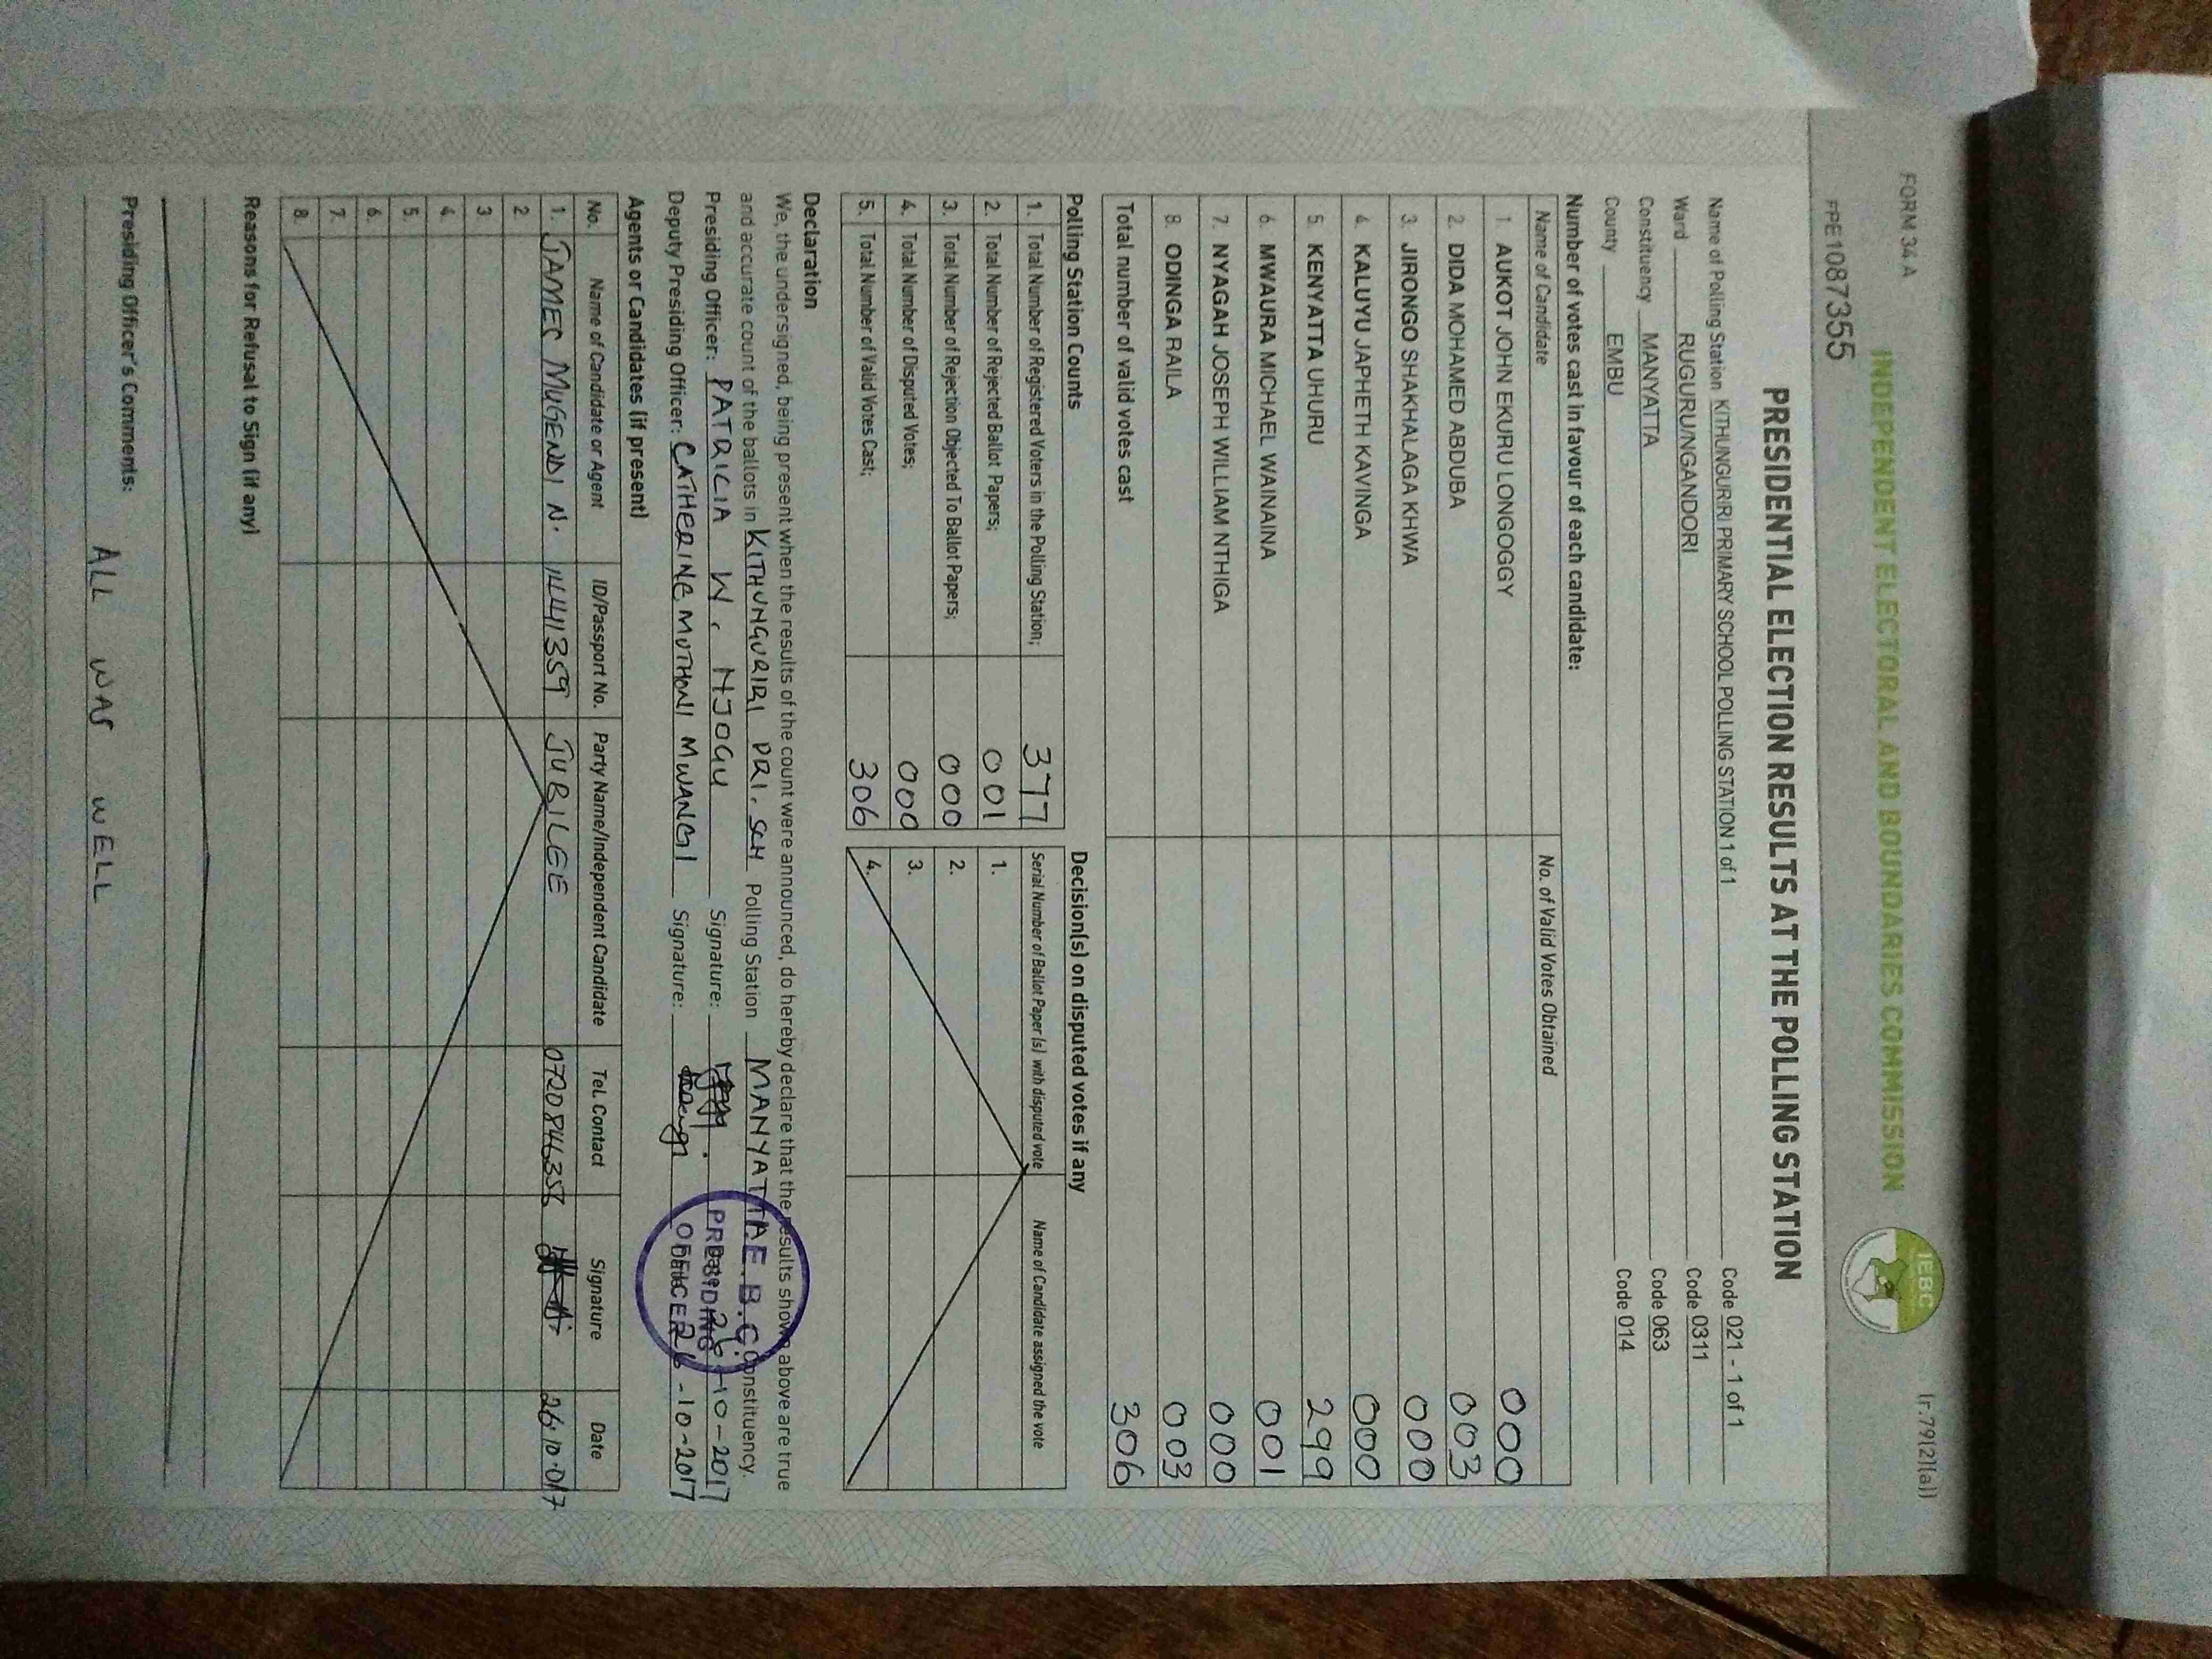 FORM 34 A
(r.79(2)(a))
INDEPENDENT ELECTORAL AND BOUNDARIES COMMISSION
IEBC
FPE1087355
PRESIDENTIAL ELECTION RESULTS AT THE POLLING STATION
Name of Polling Station KITHUNGURIRI PRIMARY SCHOOL POLLING STATION 1 of 1 Code 021 - 1 of 1
Ward RUGURU/NGANDORI Code 0311
Constituency MANYATTA Code 063
County EMBU Code 014
Number of votes cast in favour of each candidate:
Name of Candidate No. of Valid Votes Obtained
1. AUKOT JOHN EKURU LONGOGGY 000
2. DIDA MOHAMED ABDUBA 003
3. JIRONGO SHAKHALAGA KHWA 000
4. KALUYU JAPHETH KAVINGA 000
5. KENYATTA UHURU 299
6. MWAURA MICHAEL WAINAINA 001
7. NYAGAH JOSEPH WILLIAM NTHIGA 000
8. ODINGA RAILA 003
Total number of valid votes cast 306
Polling Station Counts Decision(s) on disputed votes if any
1. Total Number of Registered Voters in the Polling Station; 377 Serial Number of Ballot Paper (s) with disputed vote Name of Candidate assigned the vote
2. Total Number of Rejected Ballot Papers; 001 1.
3. Total Number of Rejection Objected To Ballot Papers; 000 2.
4. Total Number of Disputed Votes; 000 3.
5. Total Number of Valid Votes Cast; 306 4.
Declaration
We, the undersigned, being present when the results of the count were announced, do hereby declare that the results shown above are true
and accurate count of the ballots in KITHUNGURIRI PRI. SCH Polling Station MANYATTA Constituency.
Presiding Officer: PATRICIA W. NJOGU Signature: Date 26-10-2017
Deputy Presiding Officer: CATHERINE MUTHONI MWANGI Signature: Date 26-10-2017
I.E.B.C.
PRESIDING
OFFICER
Agents or Candidates (if present)
No. Name of Candidate or Agent ID/Passport No. Party Name/Independent Candidate Tel. Contact Signature Date
1. JAMES MUGENDI N. 11441359 JUBILEE 26.10.017
2
3
4.
5.
6.
7.
8.
Reasons for Refusal to Sign (if any)
Presiding Officer's Comments: ALL WAS WELL